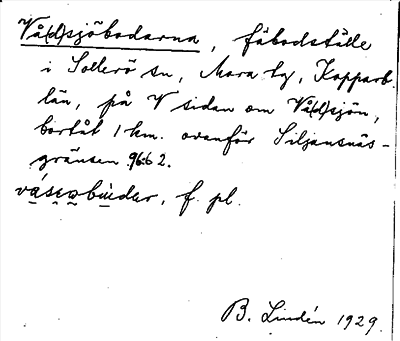 Vå(d)sjöbodarna, fäbodställe
i Sollerö sn, Mora tg, Kopparb.
län, på V sidan om Vå(d)sjön,
bortåt 1 km. ovanför Siljansnäs-
gränsen 96:6 2.
f. pl.
B. Lindén 1929.